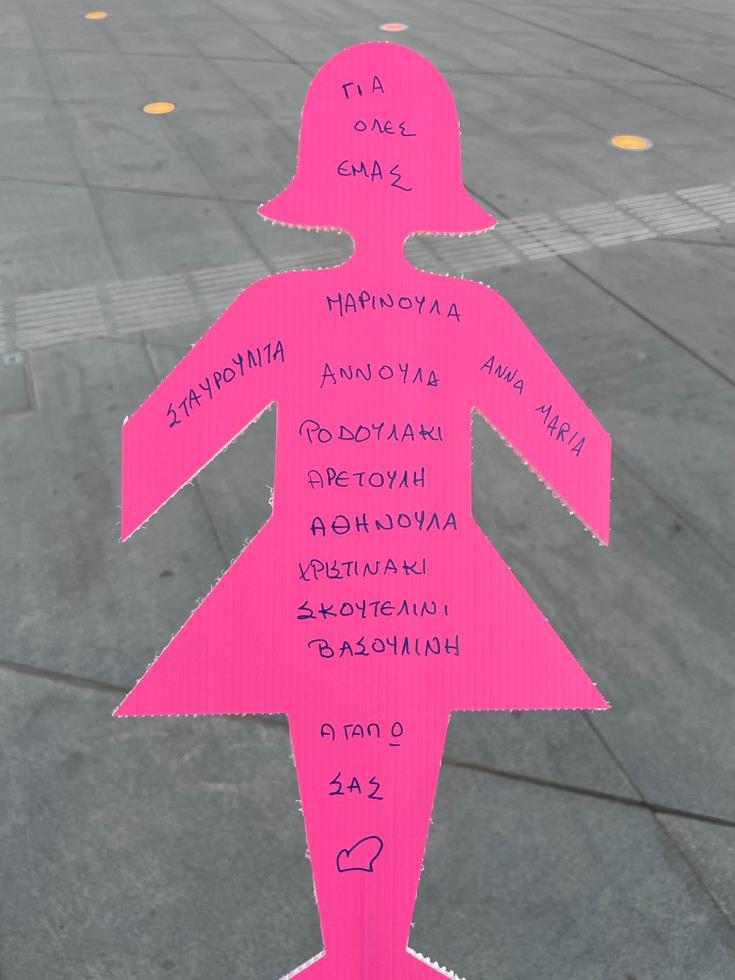 ΓΙΑ
ΟΛΕΣ
ΕΜΑΣ
ΜΑΡΙΝΟΥΛΑ
ΣΤΑΥΡΟΥΛΙΤΑ
ΑΝΝΟΥΛΑ
ΑΝΝΑ ΜΑRΙΑ
ΡΟΔΟΥΛΑΚΙ
ΑΡΕΤΟΥΛΗ
ΑΘΗΝΟΥΛΑ
ΧΡΙΣΤΙΝΑΚΙ
ΣΚΟΥΤΕΛΙΝΙ
ΒΑΣΟΥΛΙΝΗ
ΑΓΑΠΩ
ΣΑΣ